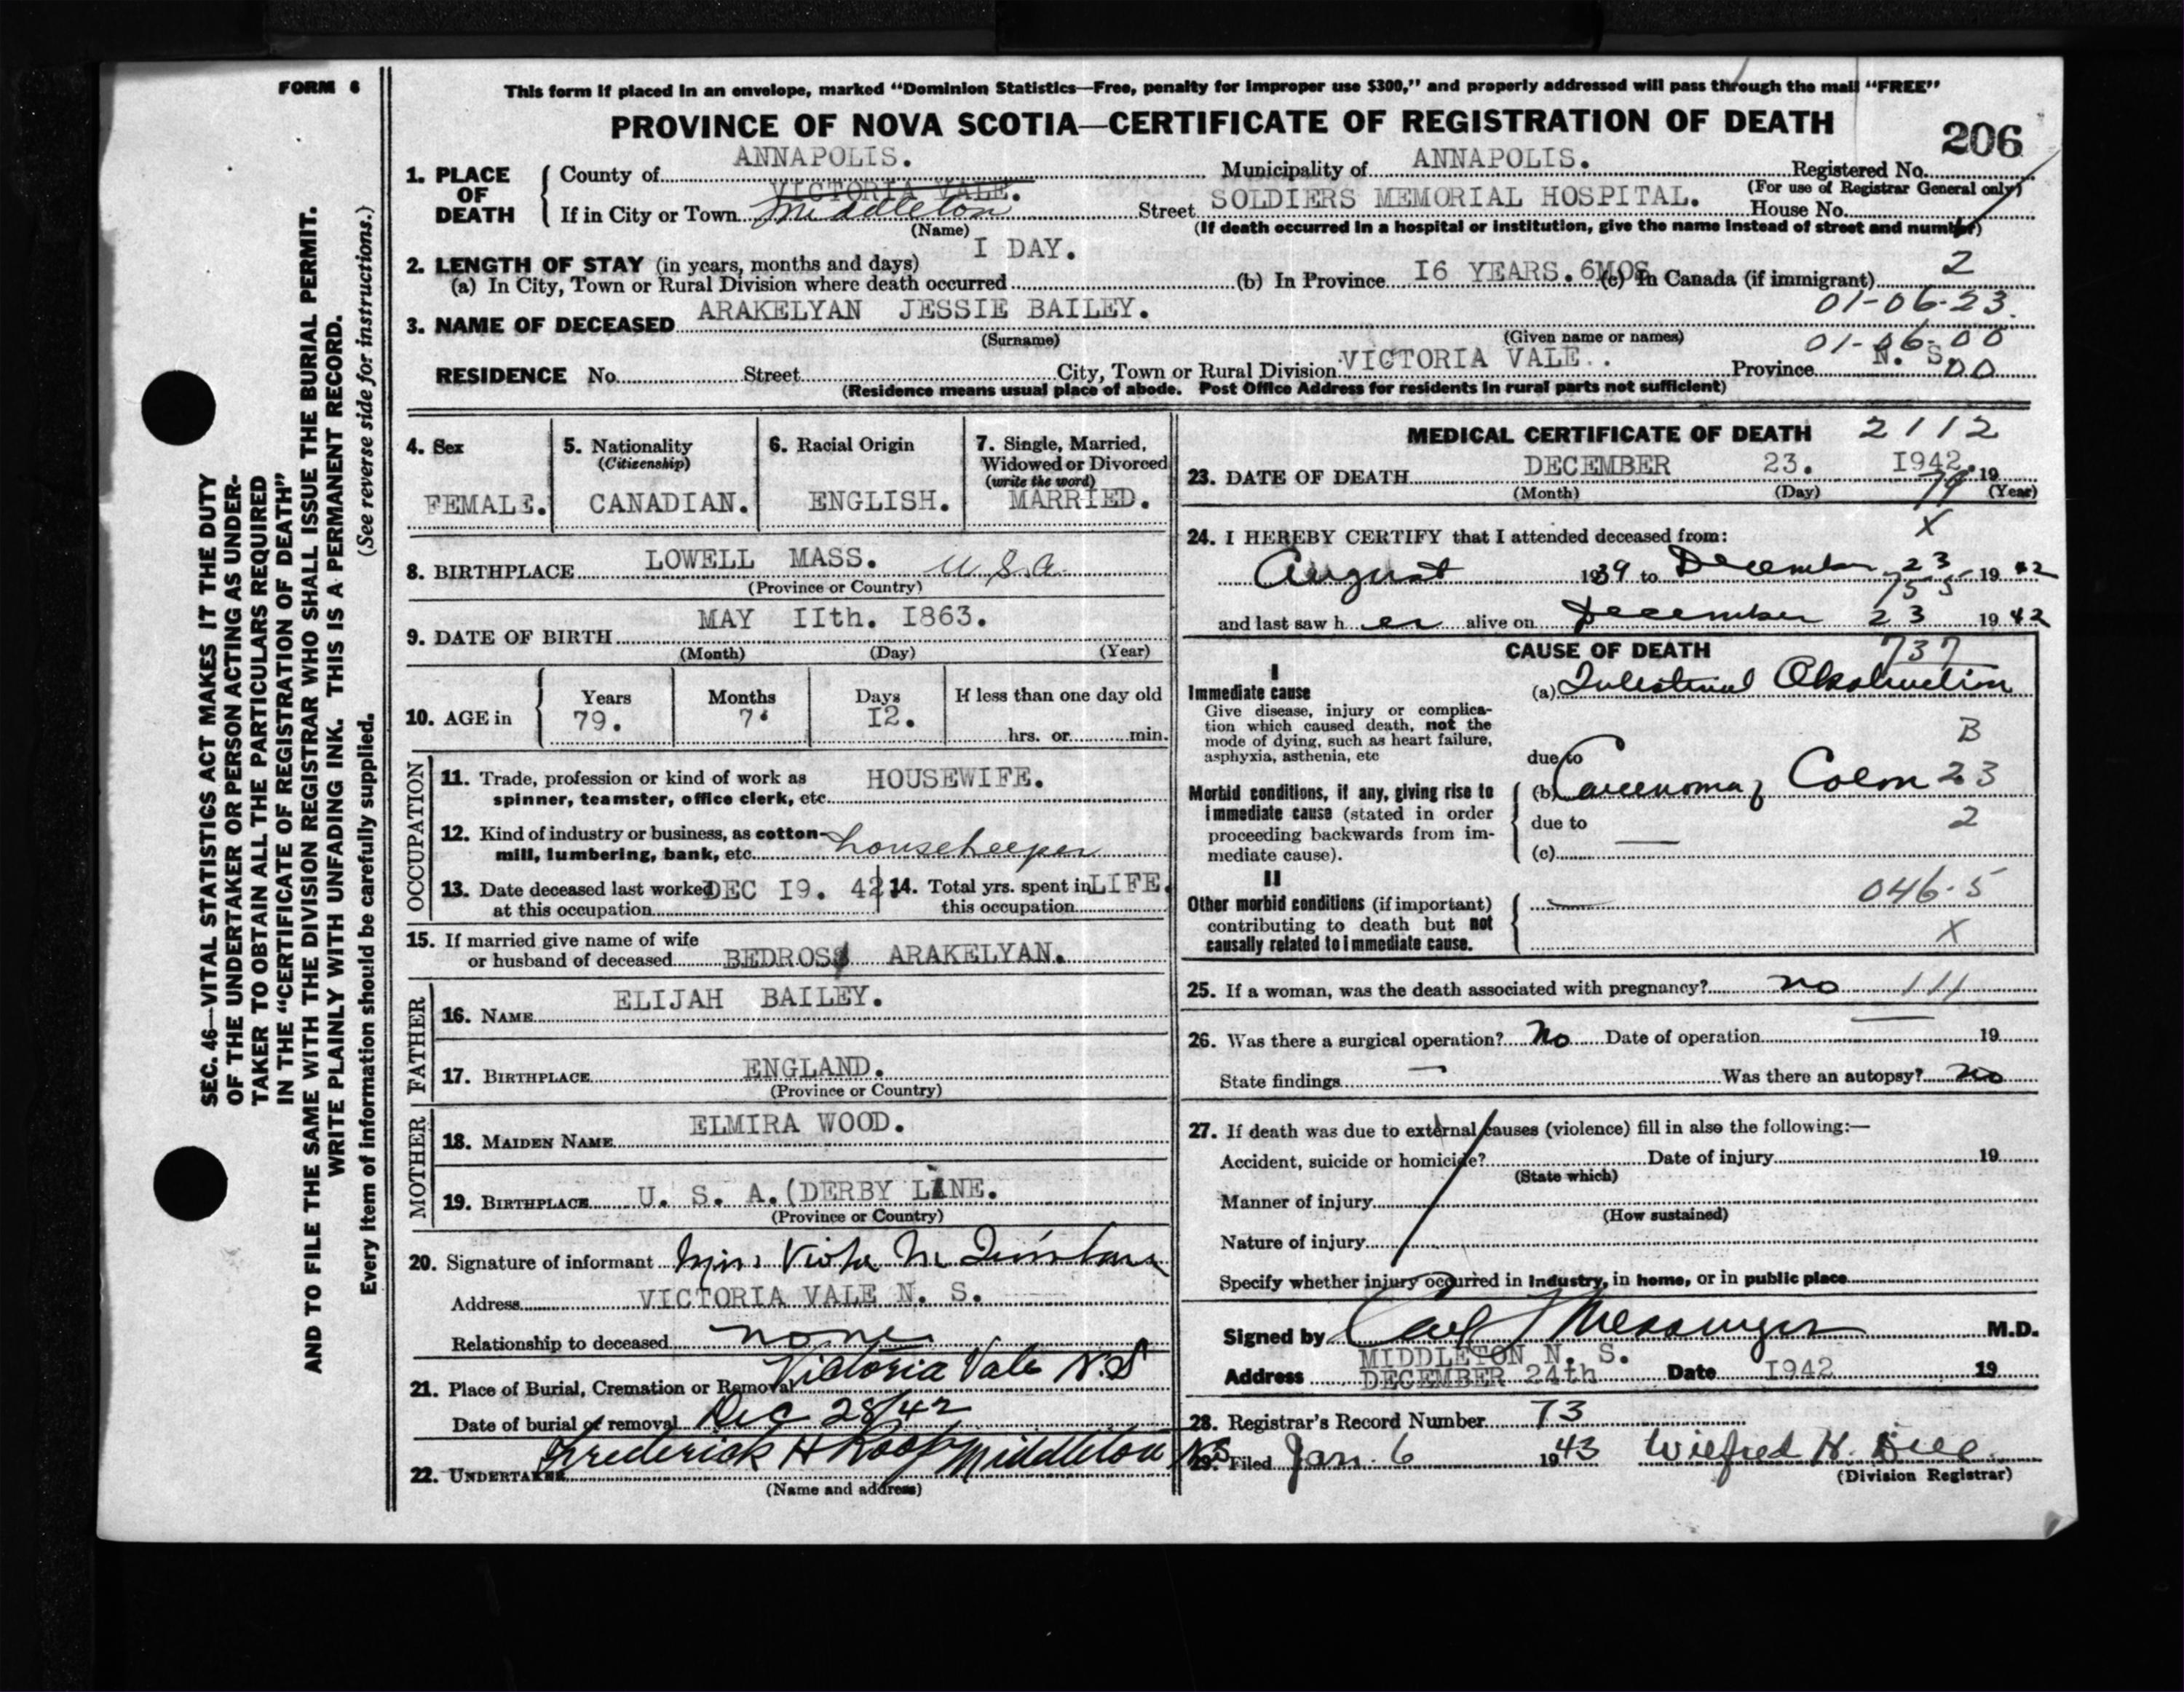 FORM 6
This form if placed in an envelope, marked "Dominion Statistics—Free, penalty for improper use $300," and properly addressed will pass through the mail "FREE"
PROVINCE OF NOVA SCOTIA—CERTIFICATE OF REGISTRATION OF DEATH
206
1. PLACE OF DEATH
County of ANNAPOLIS. Municipality of ANNAPOLIS. Registered No.
(For use of Registrar General only)
VICTORIA VALE.
If in City or Town Middleton Street SOLDIERS MEMORIAL HOSPITAL. House No.
(Name) (If death occurred in a hospital or institution, give the name instead of street and number)
2. LENGTH OF STAY (in years, months and days) I DAY.
(a) In City, Town or Rural Division where death occurred (b) In Province I6 YEARS. 6MOS (c) In Canada (if immigrant) 2
01-06-23.
3. NAME OF DECEASED ARAKELYAN JESSIE BAILEY.
(Surname) (Given name or names)
01-06-00
RESIDENCE No. Street City, Town or Rural Division VICTORIA VALE.. Province N. S. 00
(Residence means usual place of abode. Post Office Address for residents in rural parts not sufficient)
4. Sex
FEMALE.
5. Nationality
(Citizenship)
CANADIAN.
6. Racial Origin
ENGLISH.
7. Single, Married,
Widowed or Divorced
(write the word)
MARRIED.
8. BIRTHPLACE LOWELL MASS. U.S.A.
(Province or Country)
9. DATE OF BIRTH MAY IIth. I863.
(Month) (Day) (Year)
10. AGE in
Years Months Days If less than one day old
79. 7. I2.
hrs. or min.
OCCUPATION
11. Trade, profession or kind of work as
spinner, teamster, office clerk, etc. HOUSEWIFE.
12. Kind of industry or business, as cotton-
mill, lumbering, bank, etc. housekeeper
13. Date deceased last worked DEC I9. 42.
at this occupation
14. Total yrs. spent in LIFE.
this occupation
15. If married give name of wife
or husband of deceased BEDROS ARAKELYAN.
FATHER
16. NAME ELIJAH BAILEY.
17. BIRTHPLACE ENGLAND.
(Province or Country)
MOTHER
18. MAIDEN NAME ELMIRA WOOD.
19. BIRTHPLACE U. S. A.(DERBY LINE.
(Province or Country)
20. Signature of informant Viola M
Address VICTORIA VALE N. S.
Relationship to deceased none
21. Place of Burial, Cremation or Removal Victoria Vale N.S
Date of burial or removal Dec 28/42
22. UNDERTAKER Frederick H Roop Middleton NS
(Name and address)
MEDICAL CERTIFICATE OF DEATH 2112
23. DATE OF DEATH DECEMBER 23. I942. 19
(Month) (Day) (Year)
79
X
24. I HEREBY CERTIFY that I attended deceased from:
August 1939 to December 23 1942
155
and last saw h er alive on December 23 1942
CAUSE OF DEATH
737
I
Immediate cause
Give disease, injury or complica-
tion which caused death, not the
mode of dying, such as heart failure,
asphyxia, asthenia, etc
(a) Intestinal Obstruction
B
due to
Morbid conditions, if any, giving rise to
immediate cause (stated in order
proceeding backwards from im-
mediate cause).
(b) Carcenoma of Colon 23
due to 2
(c)
II
Other morbid conditions (if important)
contributing to death but not
causally related to immediate cause.
046.5
X
25. If a woman, was the death associated with pregnancy? no 111
26. Was there a surgical operation? No Date of operation 19
State findings Was there an autopsy? No
27. If death was due to external causes (violence) fill in also the following:—
Accident, suicide or homicide? Date of injury 19
(State which)
Manner of injury
(How sustained)
Nature of injury
Specify whether injury occurred in industry, in home, or in public place
Signed by Messenger M.D.
Address MIDDLETON N. S.
DECEMBER 24th Date I942 19
28. Registrar's Record Number 73
29. Filed Jan. 6 1943 Wilfred H.
(Division Registrar)
SEC. 46—VITAL STATISTICS ACT MAKES IT THE DUTY
OF THE UNDERTAKER OR PERSON ACTING AS UNDER-
TAKER TO OBTAIN ALL THE PARTICULARS REQUIRED
IN THE "CERTIFICATE OF REGISTRATION OF DEATH"
AND TO FILE THE SAME WITH THE DIVISION REGISTRAR WHO SHALL ISSUE THE BURIAL PERMIT.
WRITE PLAINLY WITH UNFADING INK. THIS IS A PERMANENT RECORD.
Every item of information should be carefully supplied. (See reverse side for instructions.)